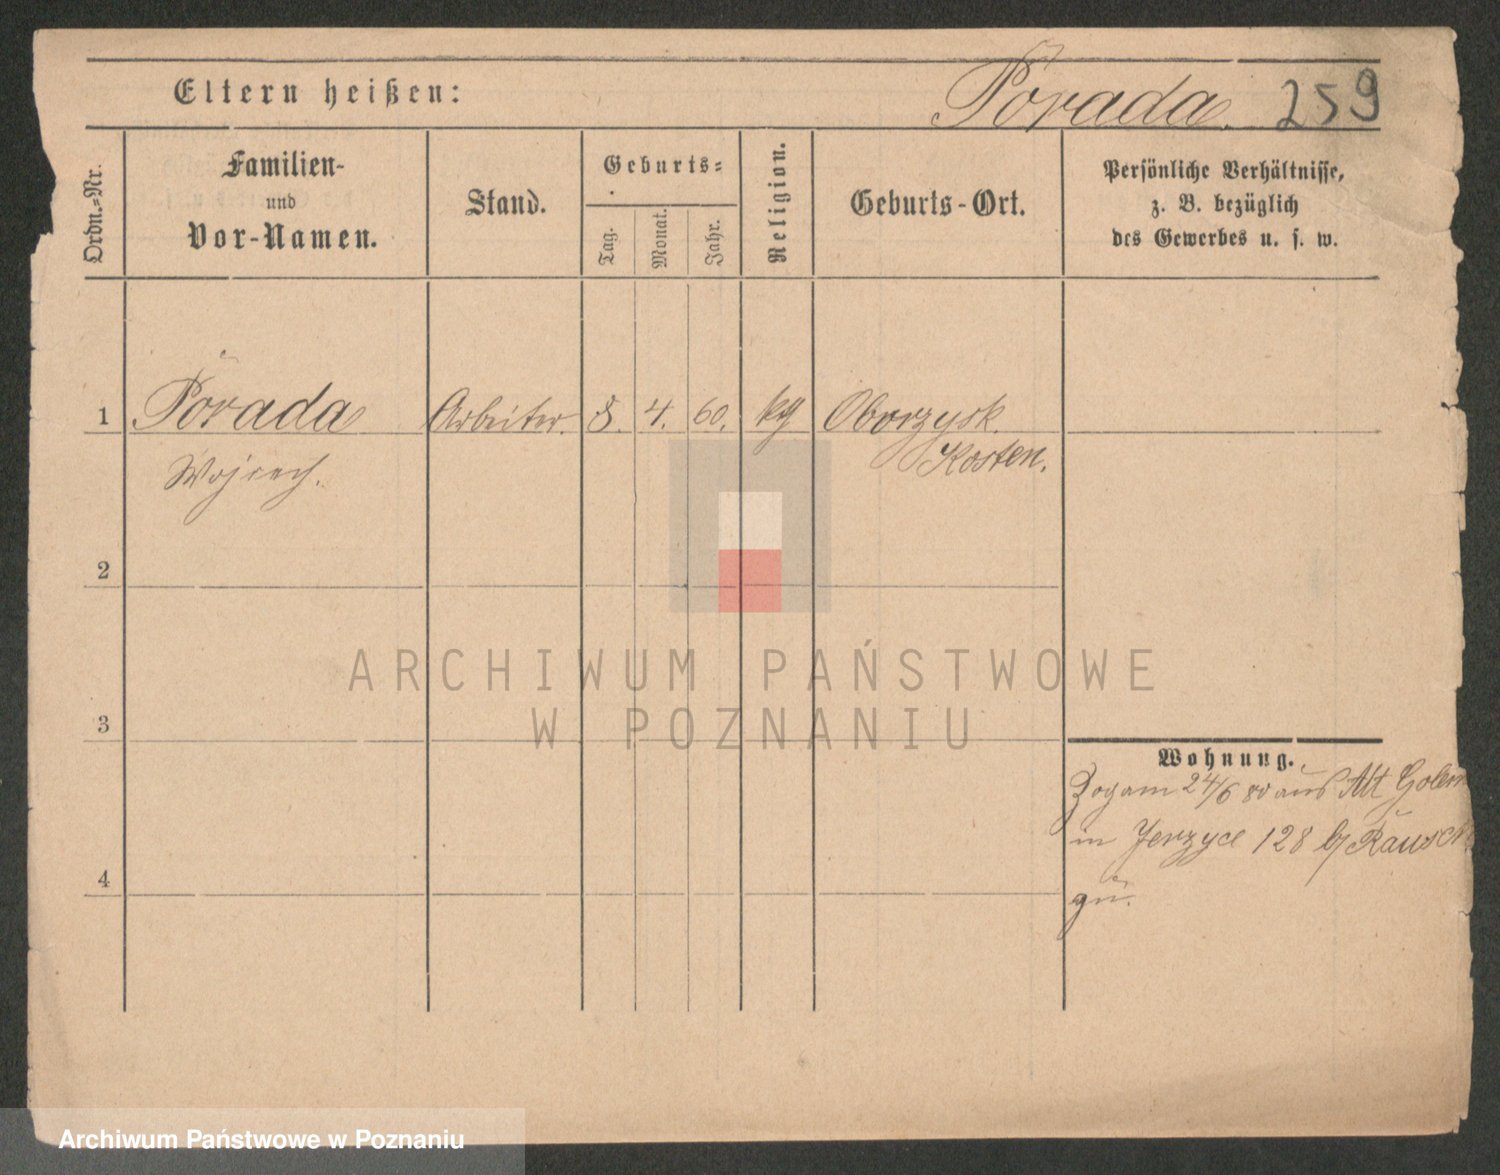 Eltern heißen:
Porada. 259
Ordn.-Nr.
Familien-
und
Vor-Namen.
Stand.
Geburts-
Tag.
Monat.
Jahr.
Religion.
Geburts-Ort.
Persönliche Verhältnisse,
z. B. bezüglich
des Gewerbes u. s. w.
1 Porada Arbeiter. 8. 4. 60. kg Oborzysk.
Wojciech. Kosten.
2
3
4
Wohnung.
Zog am 24/6 80 aus Alt
in Jerzyce 128 b/
zu.
ARCHIWUM PAŃSTWOWE
W POZNANIU
Archiwum Państwowe w Poznaniu